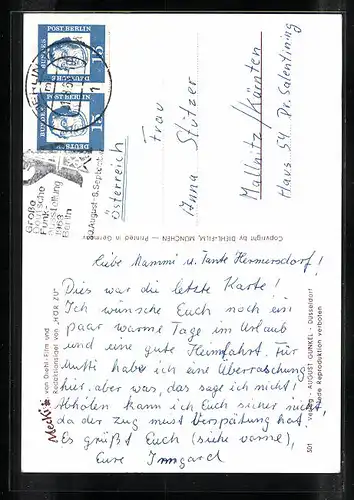 Liebe Mammi u. Tante Hermersdorf!
Dies war die letzte Karte!
Ich wünsche Euch noch ein
paar warme Tage im Urlaub
und eine gute Heimfahrt. Für
Mutti habe ich eine Überraschung
hier. aber was, das sage ich nicht!
Abholen kann ich Euch sicher nicht,
da der Zug meist Verspätung hat.
Es grüßt Euch (siehe vorne),
Eure Irmgard
Frau
Anna Stützer
Mallnitz/Kärnten
Haus 54 Dr. Salentining
Österreich
POST BERLIN
15
DEUTSCHE
BUNDES
POST BERLIN
15
DEUTSCHE
BUNDES
BERLIN
1
Große
Deutsche
Funk-
Ausstellung
1963
Berlin
30. August-8. September
Copyright by DIEHL-FILM, MÜNCHEN — Printed in Germany
Mecki
von Diehl-Film und
Redaktionsigel von "HÖR ZU"
501
Verlag - AUGUST GUNKEL - Düsseldorf
Jede Reproduktion verboten